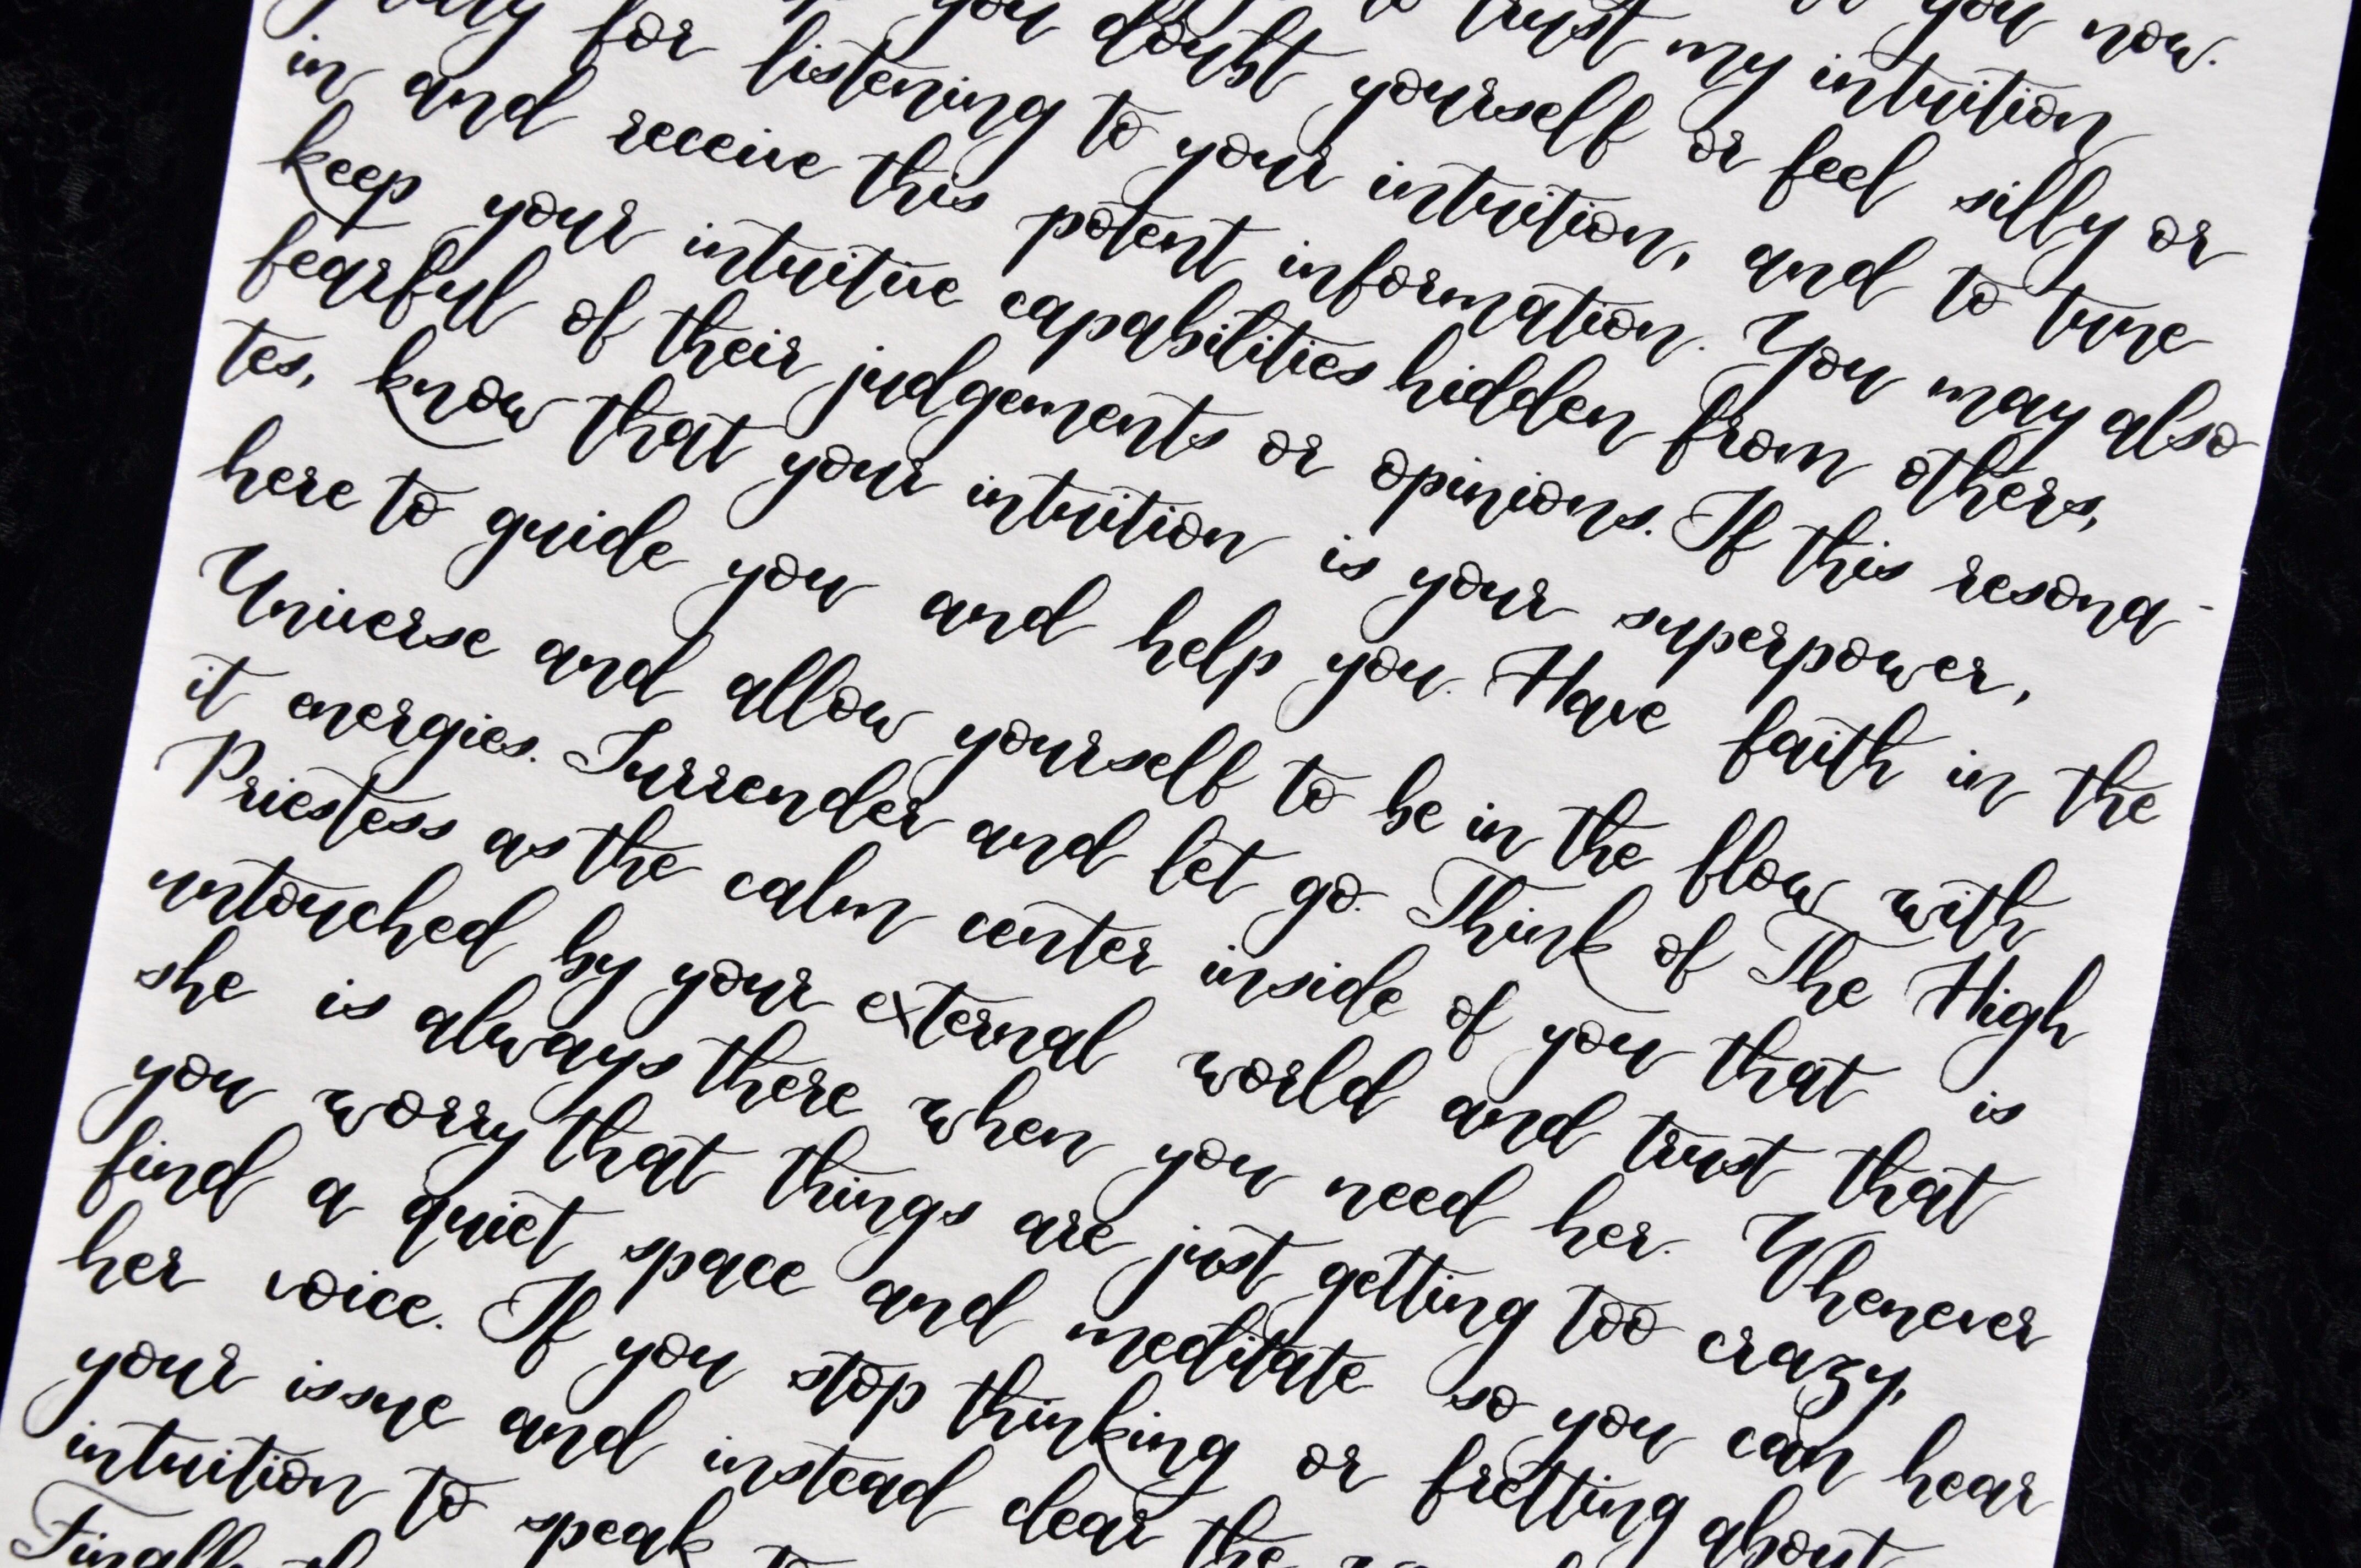 you now.
to trust my intuition
you doubt yourself or feel silly or
for listening to your intuition, and to tune
in and receive this potent information. You may also
keep your intuitive capabilities hidden from others,
fearful of their judgements or opinions. If this resona-
tes, know that your intuition is your superpower,
here to guide you and help you. Have faith in the
Universe and allow yourself to be in the flow with
it energies. Surrender and let go. Think of The High
Priestess as the calm center inside of you that is
untouched by your external world and trust that
she is always there when you need her. Whenever
you worry that things are just getting too crazy,
find a quiet space and meditate so you can hear
her voice. If you stop thinking or fretting about
your issue and instead clear the
intuition to speak to
Finally